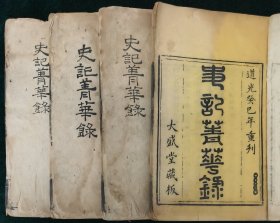 史記菁華錄
史記菁華錄
史記菁華錄
道光癸巳年重刊
史記菁華錄
大盛堂藏板